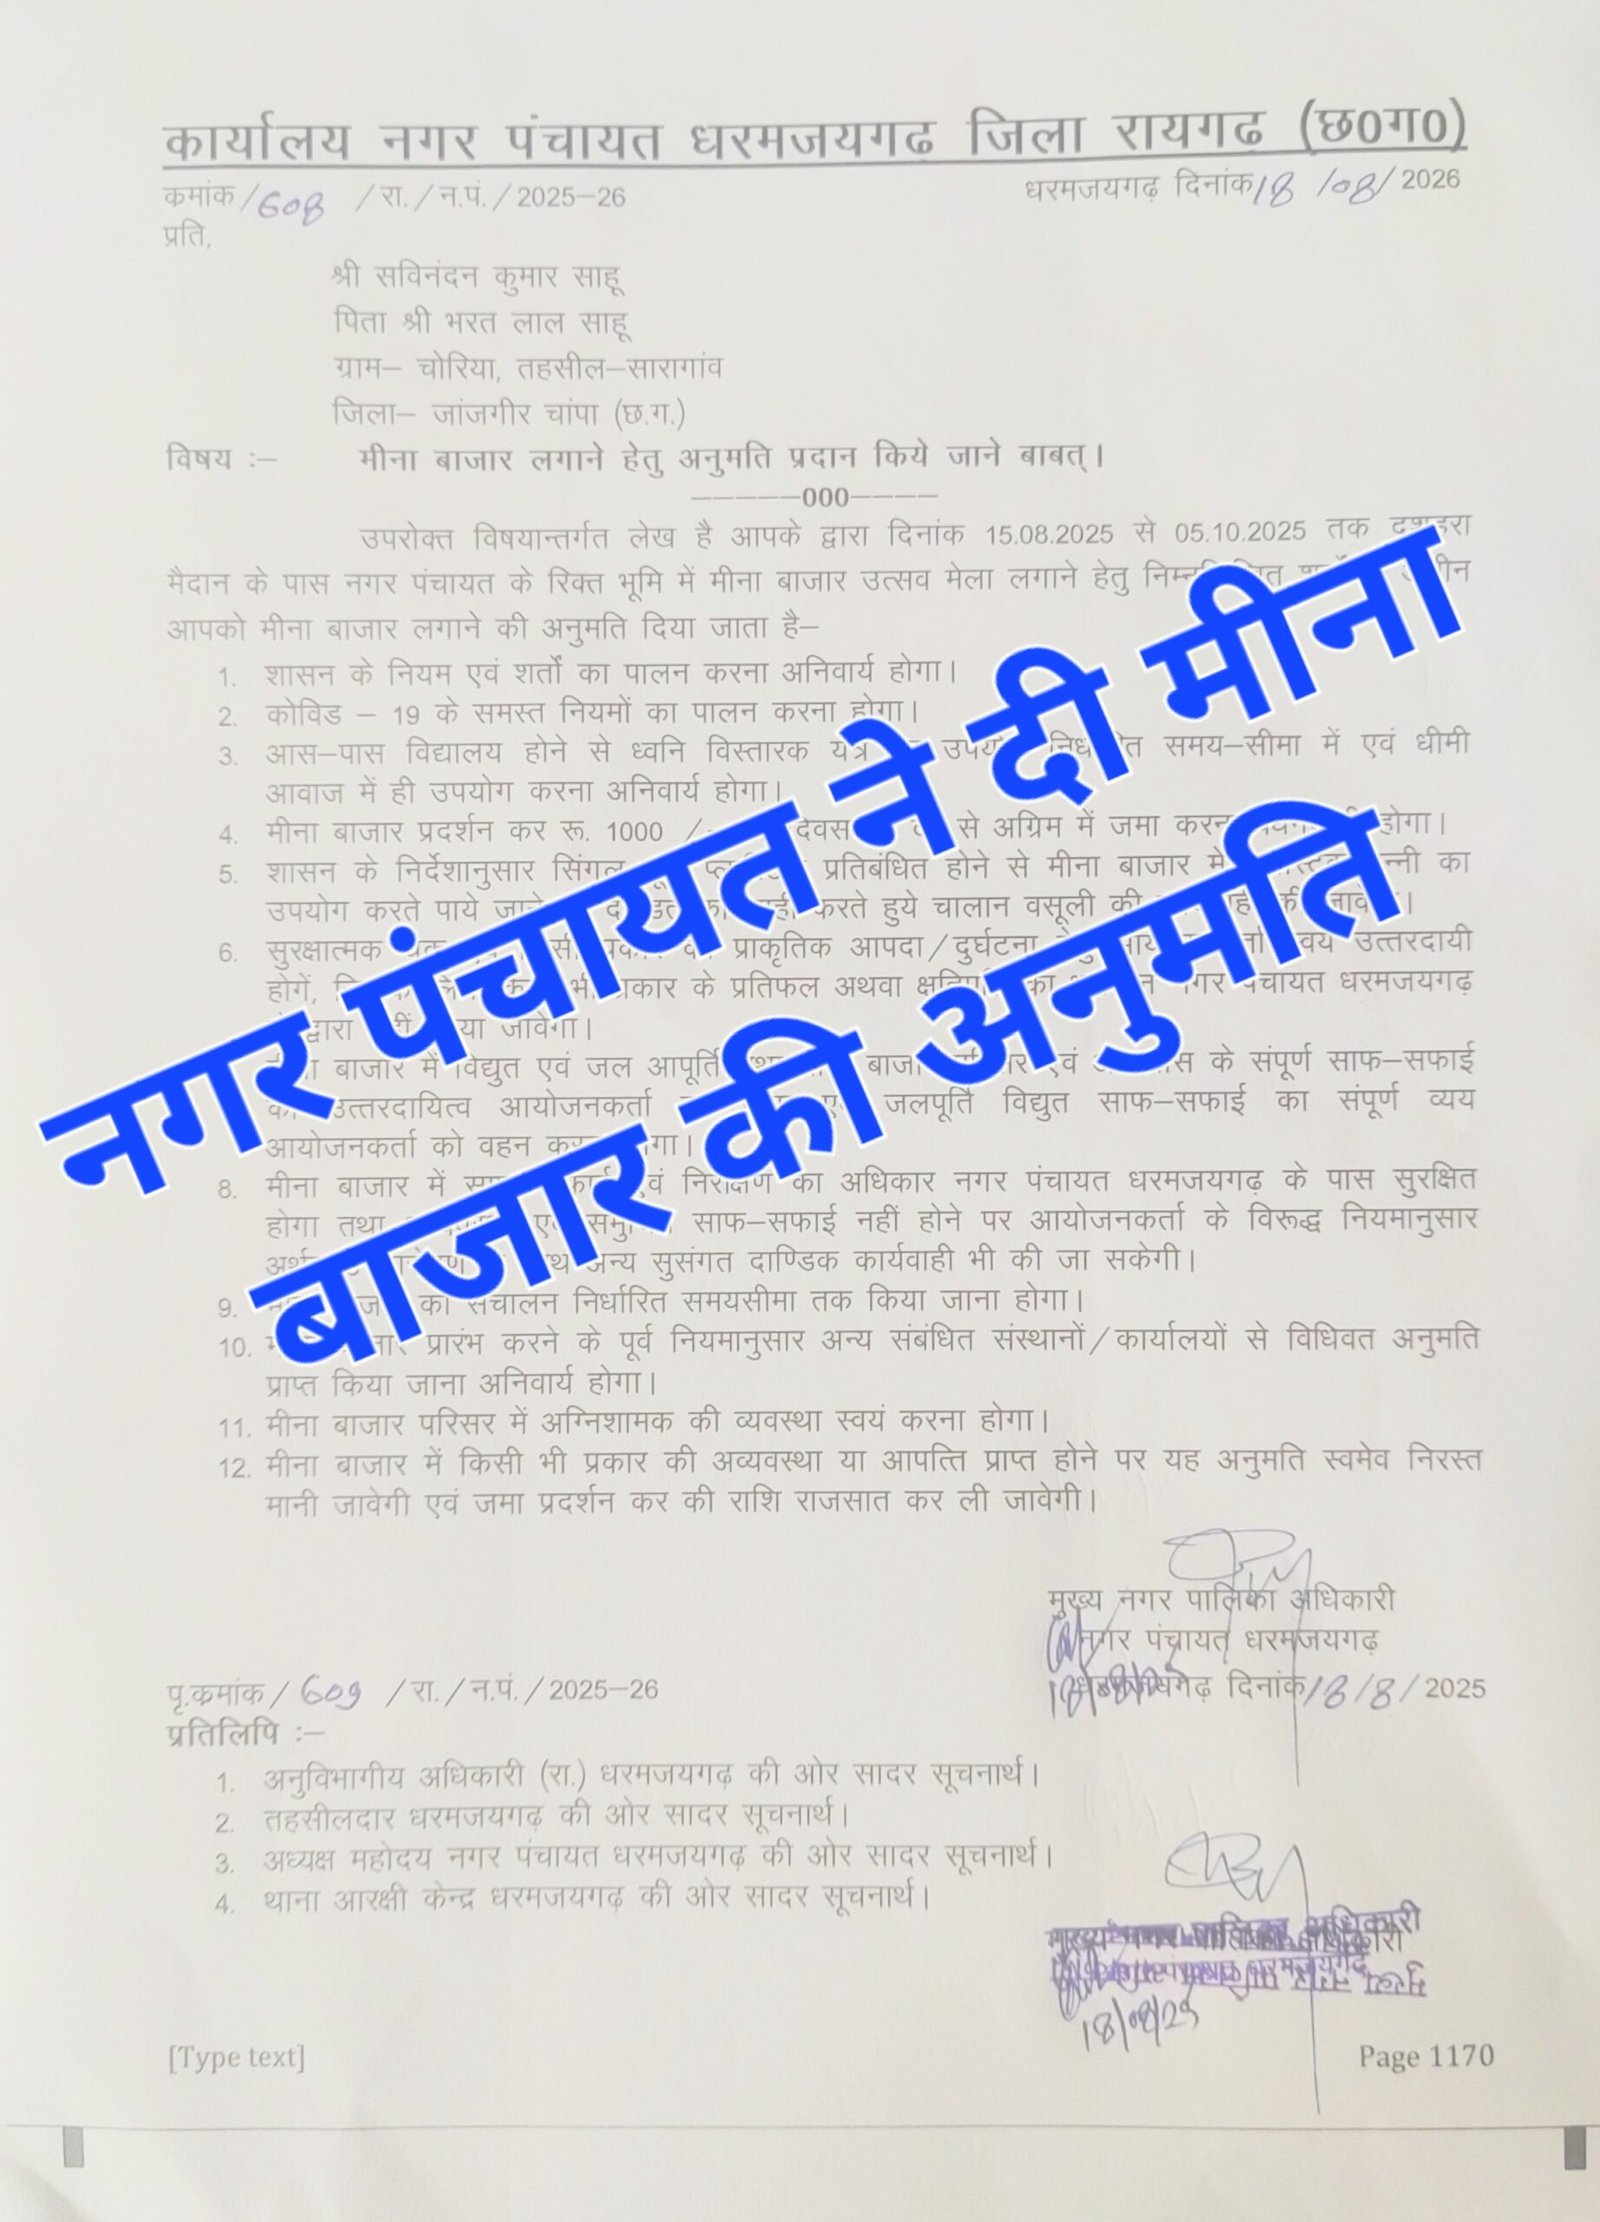 कार्यालय नगर पंचायत धरमजयगढ जिला रायगढ (छ0ग0)
कमांक/608 /रा./न.पं./2025–26
धरमजयगढ़ दिनांक 18/08/2026
प्रति,
श्री सविनंदन कुमार साहू
पिता श्री भरत लाल साहू
ग्राम– चोरिया, तहसील–सारागांव
जिला– जांजगीर चांपा (छ.ग.)
विषय :– मीना बाजार लगाने हेतु अनुमति प्रदान किये जाने बाबत्।
–––––000––––
उपरोक्त विषयान्तर्गत लेख है आपके द्वारा दिनांक 15.08.2025 से 05.10.2025 तक दशहरा
मैदान के पास नगर पंचायत के रिक्त भूमि में मीना बाजार उत्सव मेला लगाने हेतु
आपको मीना बाजार लगाने की अनुमति दिया जाता है–
1. शासन के नियम एवं शर्तो का पालन करना अनिवार्य होगा।
2. कोविड – 19 के समस्त नियमों का पालन करना होगा।
3. आस–पास विद्यालय होने से ध्वनि विस्तारक समय–सीमा में एवं धीमी
आवाज में ही उपयोग करना अनिवार्य होगा।
4. मीना बाजार प्रदर्शन कर रू. 1000 से अग्रिम में जमा होगा।
5. शासन के निर्देशानुसार सिंगल प्रतिबंधित होने से मीना बाजार में का
उपयोग करते पाये करते हुये चालान वसूली की
6. सुरक्षात्मक प्राकृतिक आपदा/दुर्घटना उत्तरदायी
होगें, के प्रतिफल अथवा पंचायत धरमजयगढ़
द्वारा जावेगा।
बाजार में विद्युत एवं जल आपूर्ति के संपूर्ण साफ–सफाई
उत्तरदायित्व आयोजनकर्ता जलपूर्ति विद्युत साफ–सफाई का संपूर्ण व्यय
आयोजनकर्ता को वहन
8. मीना बाजार में एवं निरीक्षण का अधिकार नगर पंचायत धरमजयगढ़ के पास सुरक्षित
होगा तथा साफ–सफाई नहीं होने पर आयोजनकर्ता के विरूद्ध नियमानुसार
अन्य सुसंगत दाण्डिक कार्यवाही भी की जा सकेगी।
9. का संचालन निर्धारित समयसीमा तक किया जाना होगा।
10. प्रारंभ करने के पूर्व नियमानुसार अन्य संबंधित संस्थानों/कार्यालयों से विधिवत अनुमति
प्राप्त किया जाना अनिवार्य होगा।
11. मीना बाजार परिसर में अग्निशामक की व्यवस्था स्वयं करना होगा।
12. मीना बाजार में किसी भी प्रकार की अव्यवस्था या आपत्ति प्राप्त होने पर यह अनुमति स्वमेव निरस्त
मानी जावेगी एवं जमा प्रदर्शन कर की राशि राजसात कर ली जावेगी।
नगर पंचायत ने दी मीना
बाजार की अनुमति
मुख्य नगर पालिका अधिकारी
नगर पंचायत धरमजयगढ़
पृ.क्रमांक/609 /रा./न.पं./2025–26
धरमजयगढ़ दिनांक 18/8/2025
प्रतिलिपि :–
1. अनुविभागीय अधिकारी (रा.) धरमजयगढ़ की ओर सादर सूचनार्थ।
2. तहसीलदार धरमजयगढ़ की ओर सादर सूचनार्थ।
3. अध्यक्ष महोदय नगर पंचायत धरमजयगढ़ की ओर सादर सूचनार्थ।
4. थाना आरक्षी केन्द्र धरमजयगढ़ की ओर सादर सूचनार्थ।
मुख्य नगर पालिका अधिकारी
18/08/25
[Type text]
Page 1170